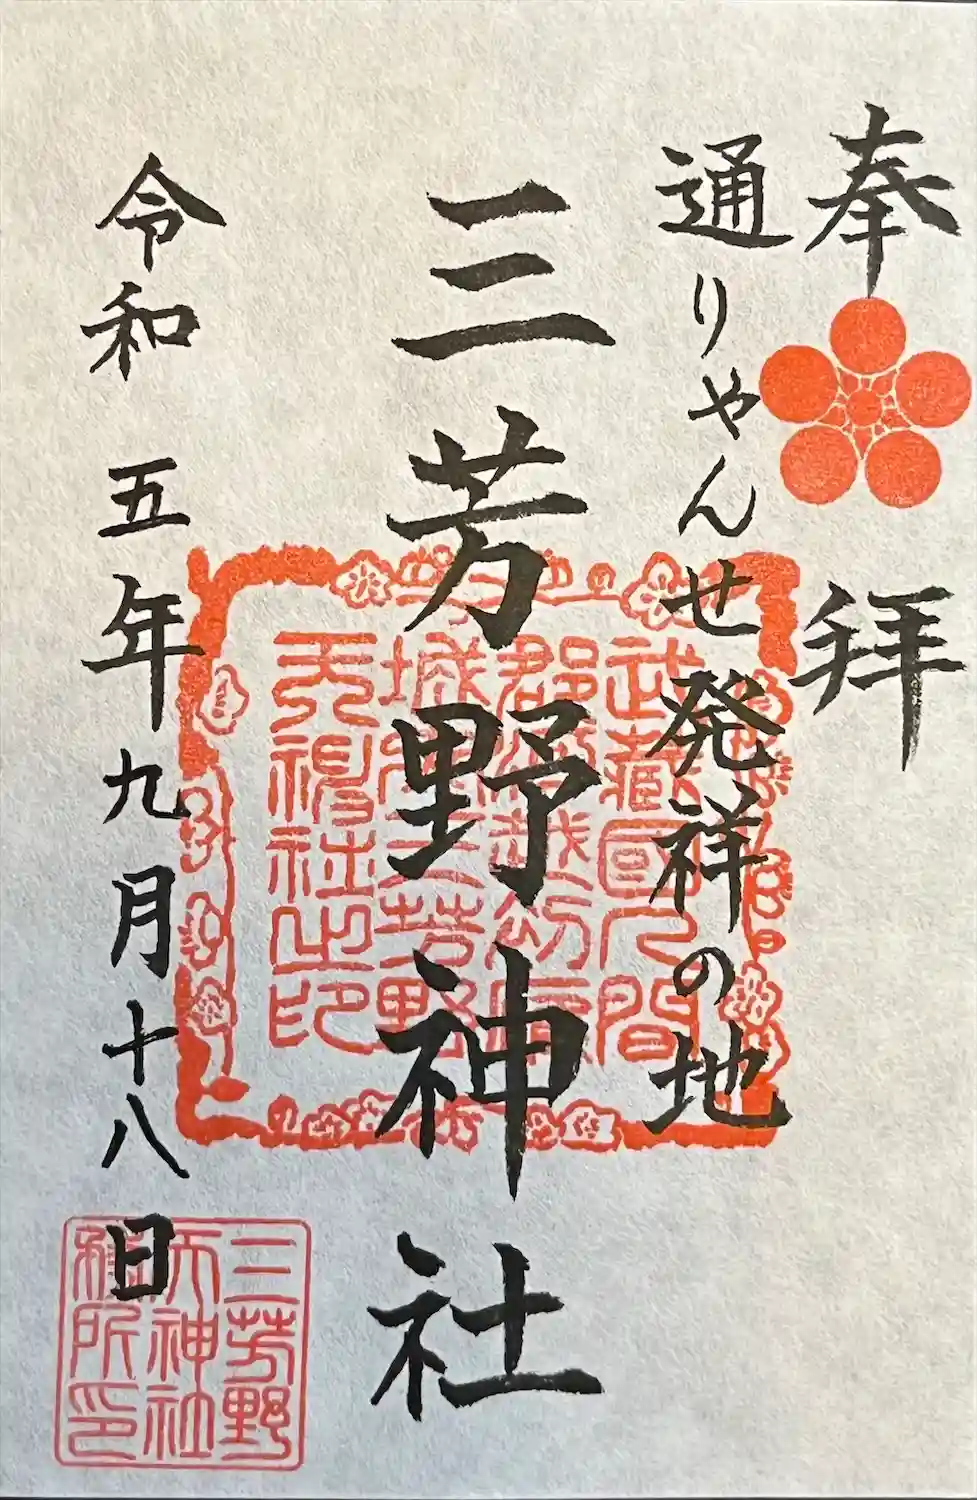 奉拝
通りゃんせ発祥の地
三芳野神社
令和五年九月十八日
武蔵國入間
郡河越初雁
城内三芳野
天神社之印
三芳野
天神社
務所印